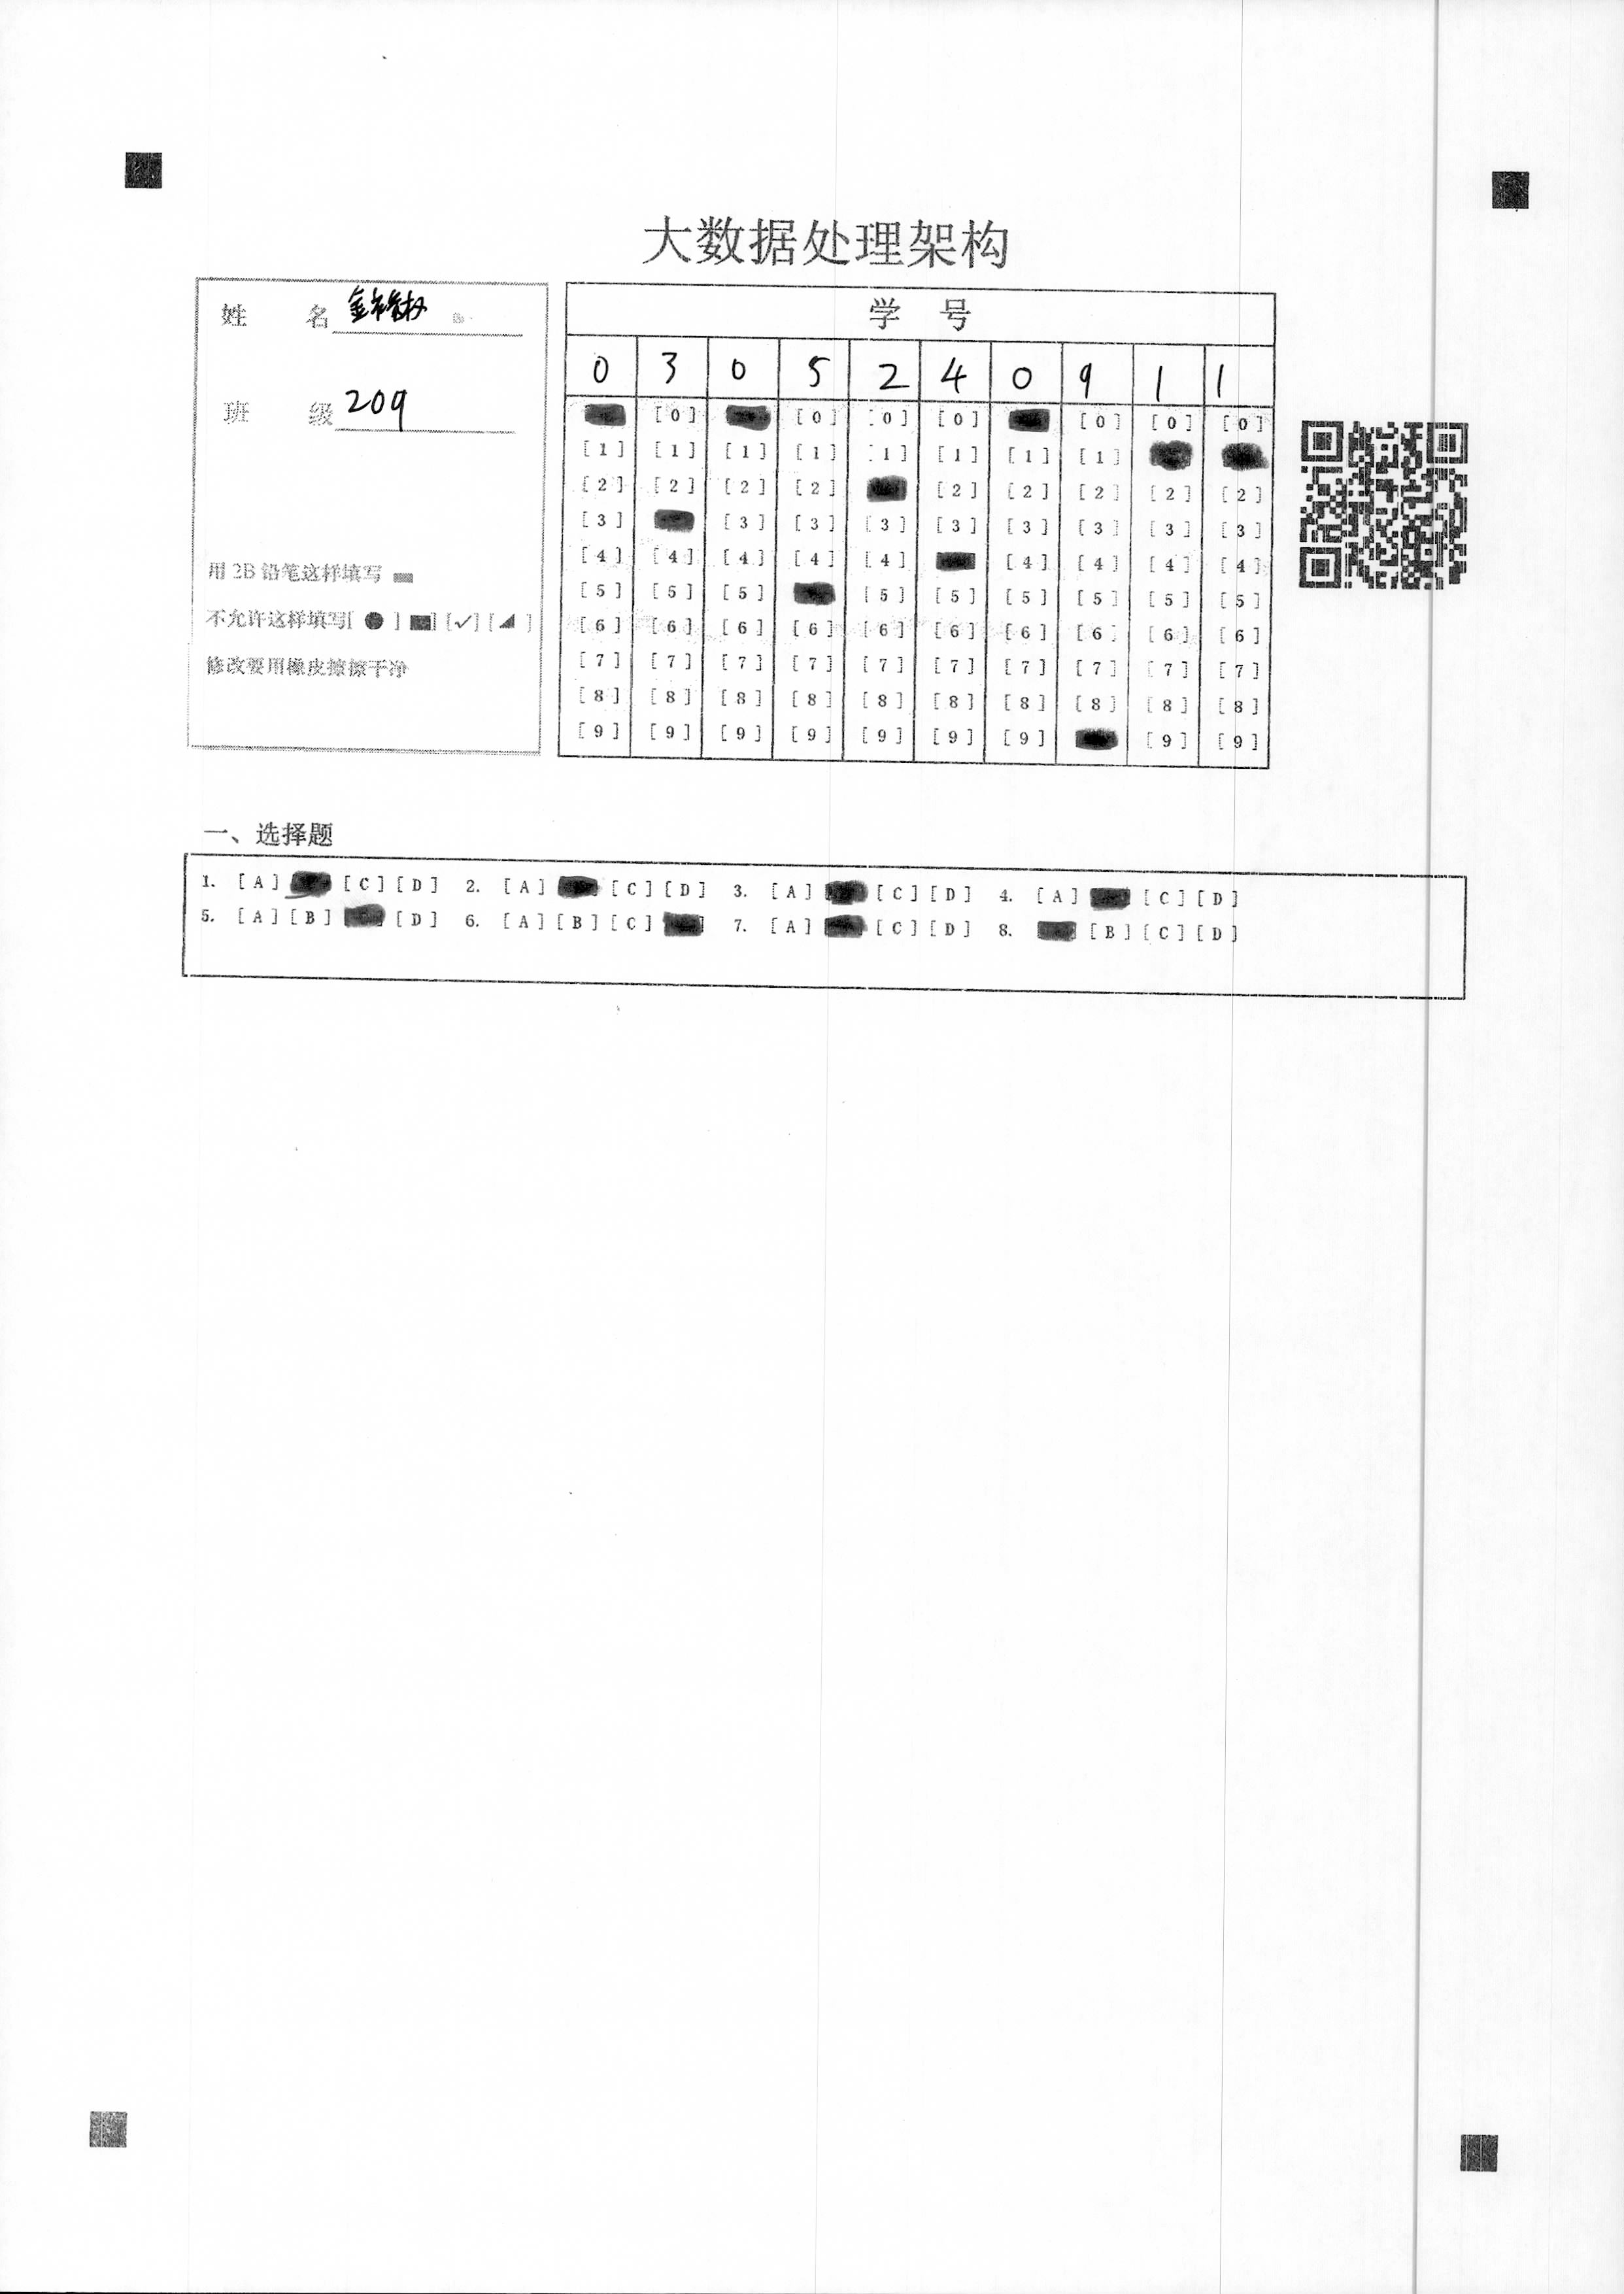 大数据处理架构
姓 名
班 级 209
用 2B 铅笔这样填写
不允许这样填写[ ● ] [■] [✓] [◢ ]
修改要用橡皮擦擦干净
学 号
0 3 0 5 2 4 0 9 1 1
[0] [0] [0] [0] [0] [0] [0]
[1] [1] [1] [1] [1] [1] [1] [1]
[2] [2] [2] [2] [2] [2] [2] [2] [2]
[3] [3] [3] [3] [3] [3] [3] [3] [3]
[4] [4] [4] [4] [4] [4] [4] [4] [4]
[5] [5] [5] [5] [5] [5] [5] [5] [5]
[6] [6] [6] [6] [6] [6] [6] [6] [6] [6]
[7] [7] [7] [7] [7] [7] [7] [7] [7] [7]
[8] [8] [8] [8] [8] [8] [8] [8] [8] [8]
[9] [9] [9] [9] [9] [9] [9] [9] [9]
一、选择题
1. [A] [C] [D] 2. [A] [C] [D] 3. [A] [C] [D] 4. [A] [C] [D]
5. [A] [B] [D] 6. [A] [B] [C] 7. [A] [C] [D] 8. [B] [C] [D]